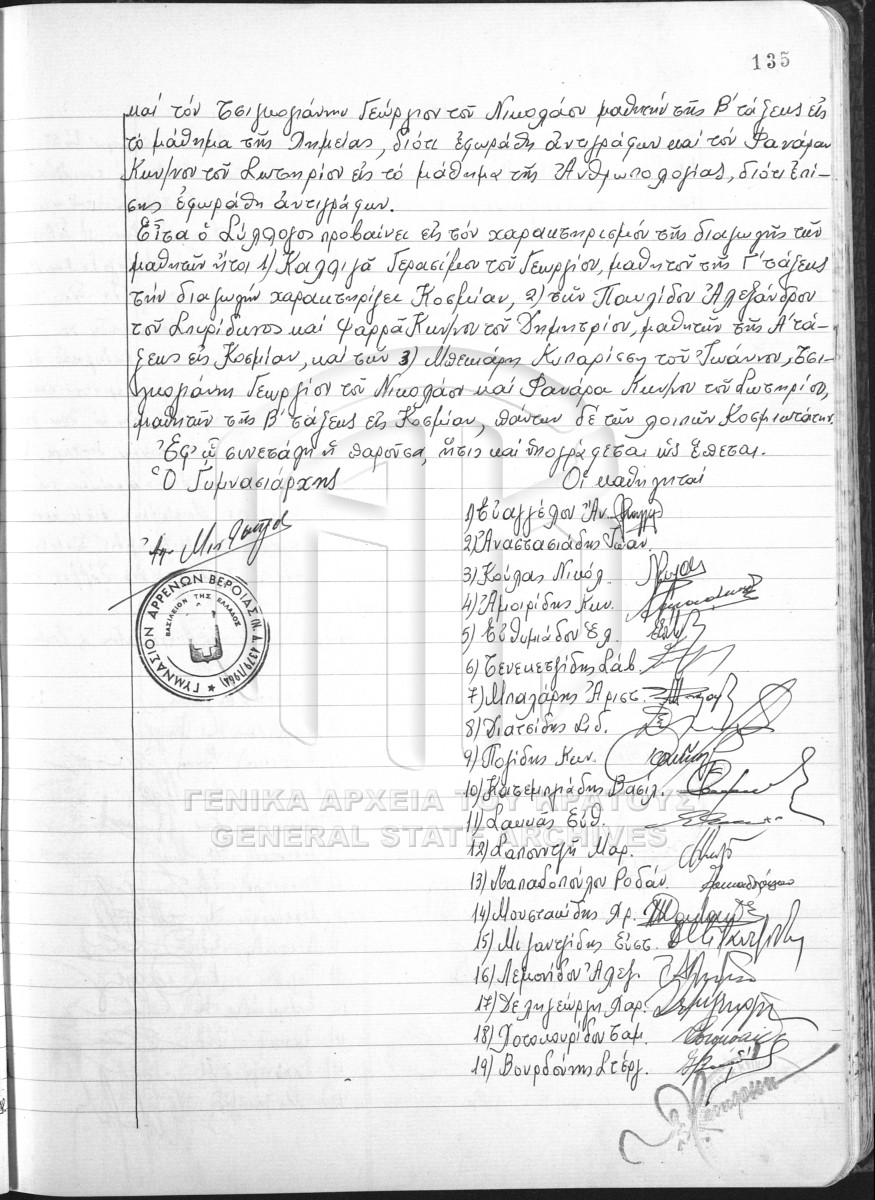 135
καὶ τὸν Τσιλικογιάννην Γεώργιον τοῦ Νικολάου μαθητὴν τῆς Β' τάξεως εἰς
τὸ μάθημα τῆς Χημείας, διότι ἐφωράθη ἀντιγράφων καὶ τὸν Φανάραν
Κων/νον τοῦ Σωτηρίου εἰς τὸ μάθημα τῆς Ἀνθρωπολογίας, διότι ἐπί-
σης ἐφωράθη ἀντιγράφων.
Εἶτα ὁ Σύλλογος προβαίνει εἰς τὸν χαρακτηρισμὸν τῆς διαγωγῆς τῶν
μαθητῶν ἤτοι 1) Καλλιγᾶ Γερασίμου τοῦ Γεωργίου, μαθητοῦ τῆς Γ' τάξεως
τὴν διαγωγὴν χαρακτηρίζει Κοσμίαν, 2) τῶν Παυλίδου Ἀλεξάνδρου
τοῦ Σπυρίδωνος καὶ Ψαρρᾶ Κων/νου τοῦ Δημητρίου, μαθητῶν τῆς Α' τά-
ξεως εἰς Κοσμίαν, καὶ τῶν 3) Μπεκιάρη Κυπαρίσση τοῦ Ἰωάννου, Τσι-
λικογιάννη Γεωργίου τοῦ Νικολάου καὶ Φανάρα Κων/νου τοῦ Σωτηρίου,
μαθητῶν τῆς Β' τάξεως εἰς Κοσμίαν, πάντων δὲ τῶν λοιπῶν Κοσμιωτάτην.
Ἐφ' ᾧ συνετάγη ἡ παροῦσα, ἥτις καὶ ὑπογράφεται ὡς ἕπεται.
Ὁ Γυμνασιάρχης
Οἱ καθηγηταί
ΓΥΜΝΑΣΙΟΝ ΑΡΡΕΝΩΝ ΒΕΡΟΙΑΣ (Ν.Δ. 4379/1964)
ΒΑΣΙΛΕΙΟΝ ΤΗΣ ΕΛΛΑΔΟΣ
1) Εὐαγγέλου Ἀν.
2) Ἀναστασιάδης Ἰωάν.
3) Κούλας Νικόλ.
4) Ἀμοιρίδης Κων.
5) Εὐθυμιάδου Ἑλ.
6) Τενεκετζίδης Σάβ.
7) Μπαλάρης Ἀριστ.
8) Χιατσίδης Σιδ.
9) Ποζίδης Κων.
10) Κατεμλιάδης Βασίλ.
11) Σακκᾶς Εὐθ.
12) Σαπουντζῆ Μαρ.
13) Παπαδοπούλου Ροδάν.
14) Μουστακίδης Χρ.
15) Μιζαντζίδης Εὐστ.
16) Λεμονίδου Ἀλεξ.
17) Δεληγεώργης Χαρ.
18) Ποτοκουρίδου Σαμ.
19) Βουρδούνης Στέργ.
ΓΕΝΙΚΑ ΑΡΧΕΙΑ ΤΟΥ ΚΡΑΤΟΥΣ
GENERAL STATE ARCHIVES